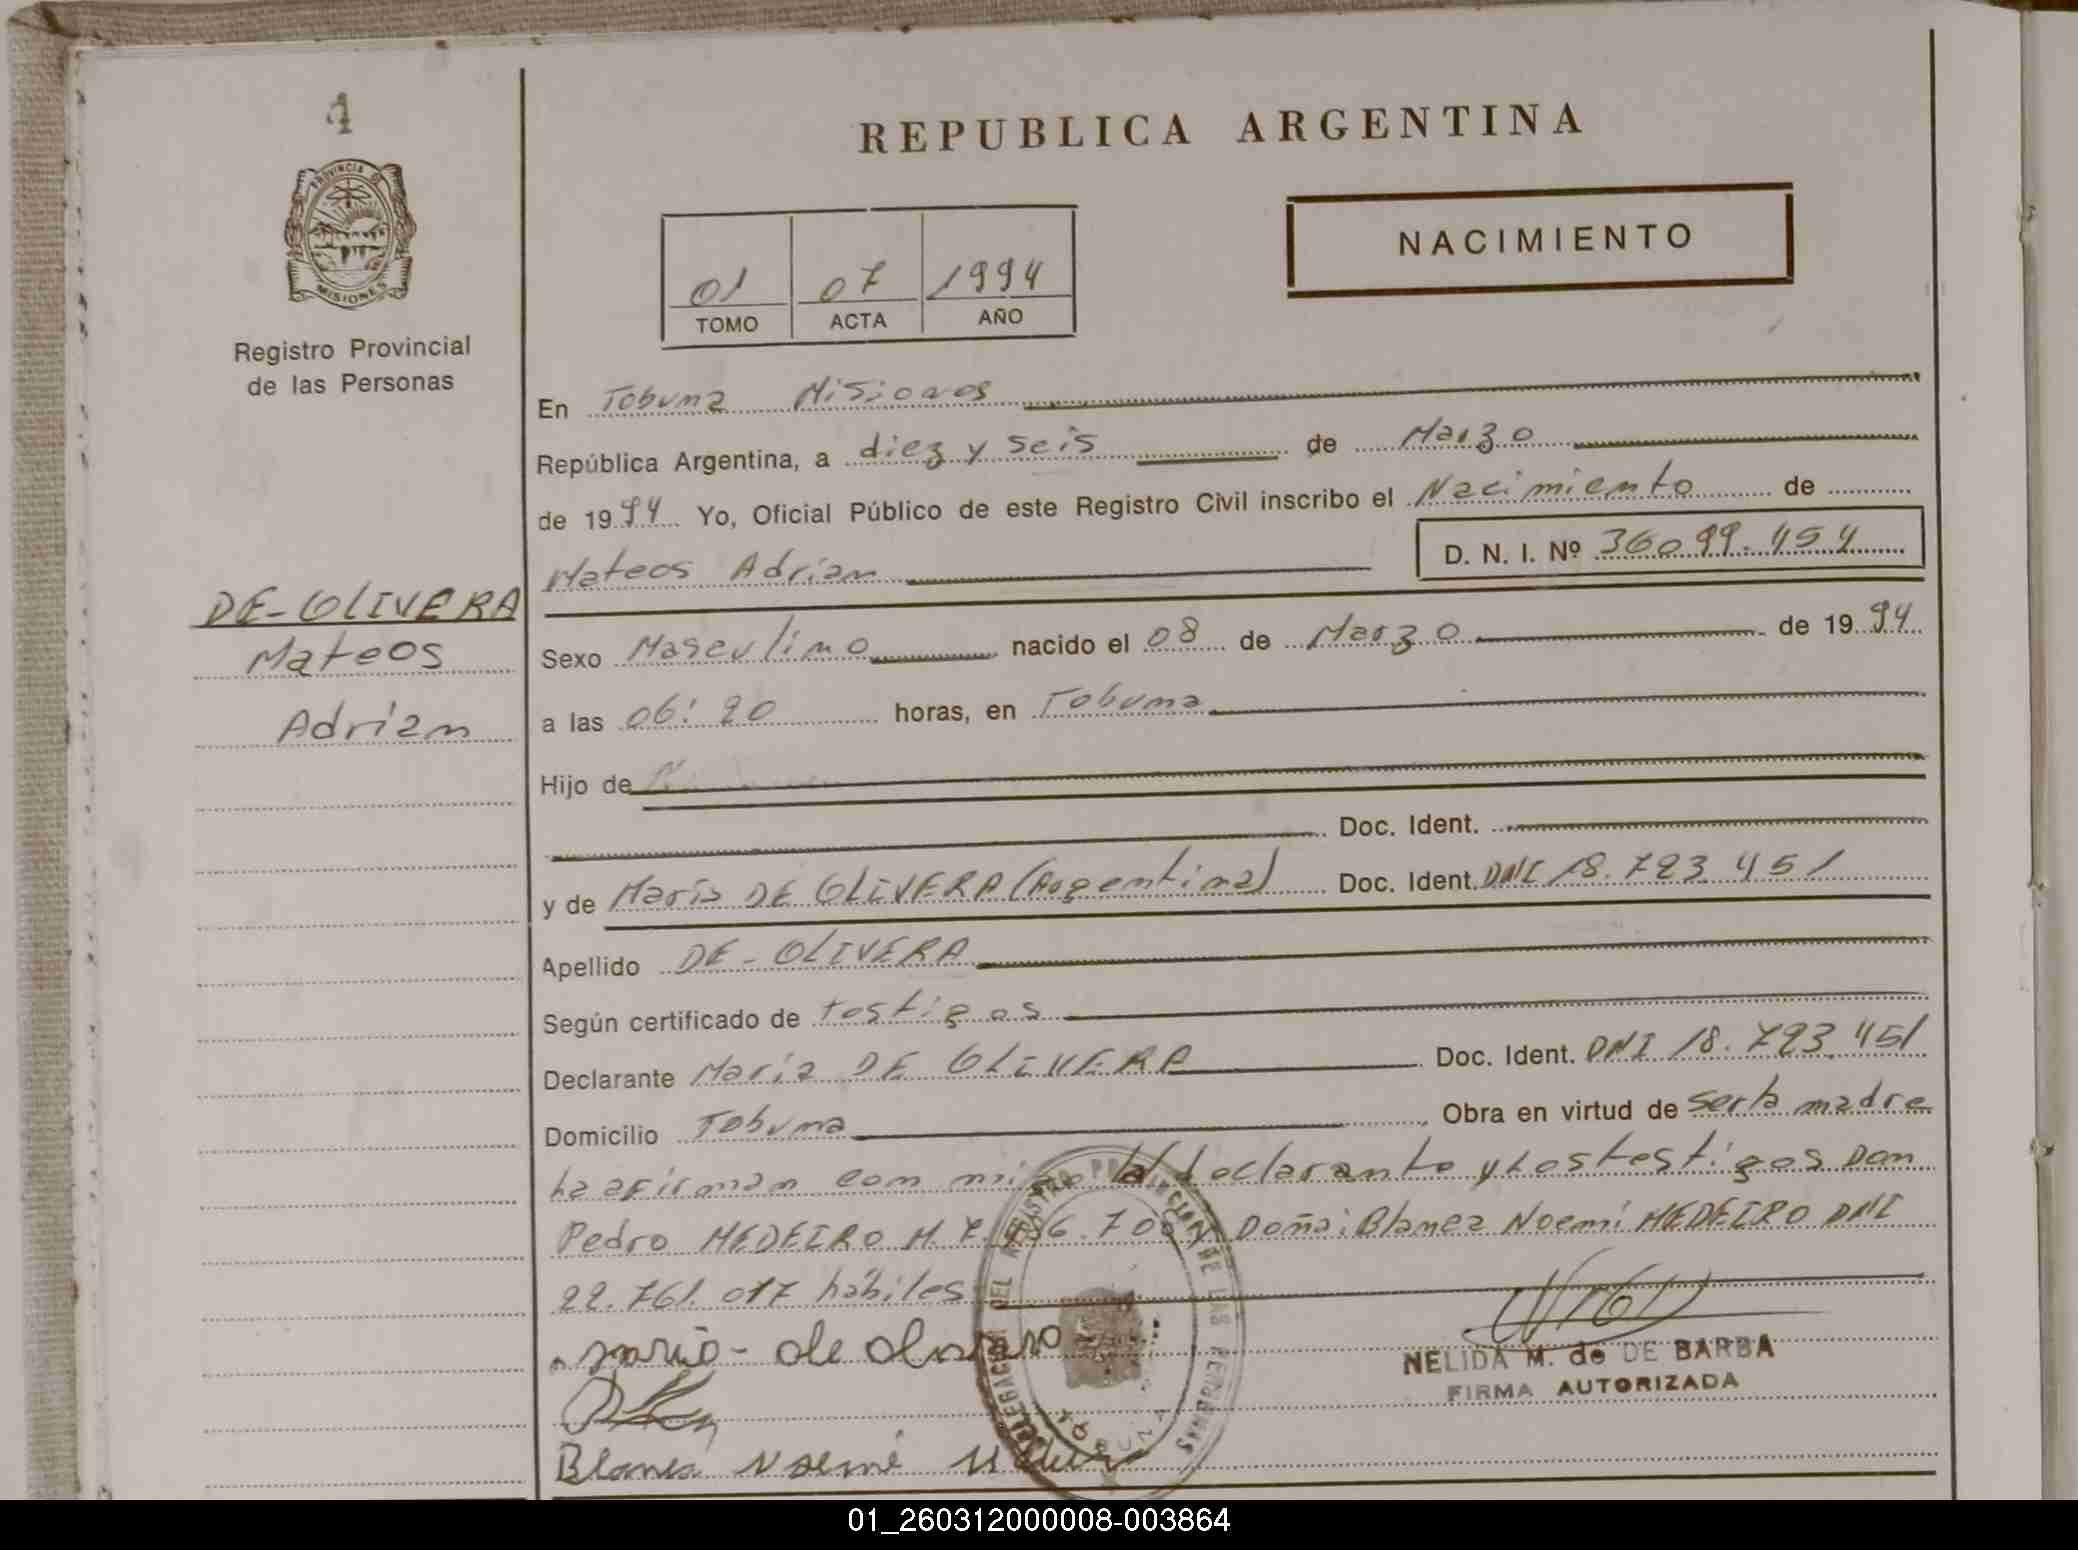 4
PROVINCIA DE
MISIONES
Registro Provincial
de las Personas
REPUBLICA ARGENTINA
NACIMIENTO
01 07 1994
TOMO ACTA AÑO
En Tobuna Misiones
República Argentina, a diez y seis de Marzo
de 1994 Yo, Oficial Público de este Registro Civil inscribo el Nacimiento de
Mateos Adrian D. N. I. Nº 36099.454
DE-OLIVERA
Mateos
Adrian
Sexo Masculino nacido el 08 de Marzo de 1994
a las 06:20 horas, en Tobuna
Hijo de
Doc. Ident.
y de María DE OLIVERA (Argentina) Doc. Ident. DNI 18.723.451
Apellido DE-OLIVERA
Según certificado de testigos
Declarante María DE OLIVERA Doc. Ident. DNI 18.723.451
Domicilio Tobuna Obra en virtud de ser la madre
la afirman con migo la declarante y Los testigos Don
Pedro MEDEIRO M. 7. 6.700 y Doña: Blanca Noemí MEDEIRO DNI
22.761.017 hábiles
DELEGACION DEL REGISTRO PROVINCIAL DE LAS PERSONAS
TOBUNA
NELIDA M. de DE BARBA
FIRMA AUTORIZADA
Blanca Noemé
01_260312000008-003864